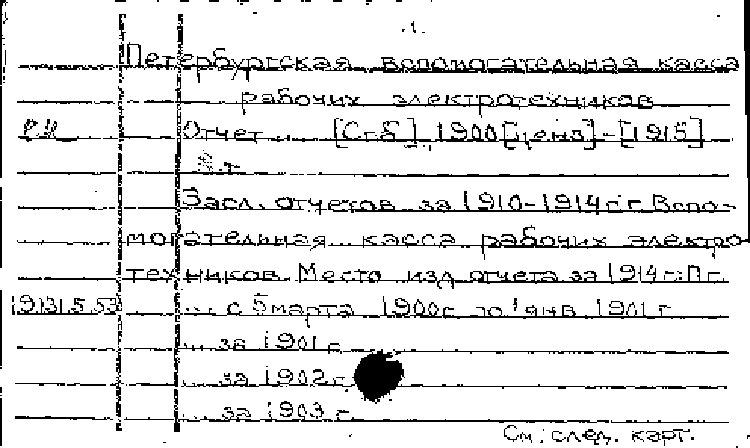 .1.
Петербургская вспомогательная касса
рабочих электротехников
Отчет ... [Спб], 1900 [цена] - [1915]
8. т
Засл. отчетов за 1910-1914 г.г. Вспо-
могательная касса рабочих электро-
техников. Место изд. отчета за 1914 г.: Пг.
19.131.5.53 ... с 5 марта 1900 г. по 1 янв. 1901 г.
... за 1901 г.
... за 1902 г.
... за 1903 г.
См. след. карт.